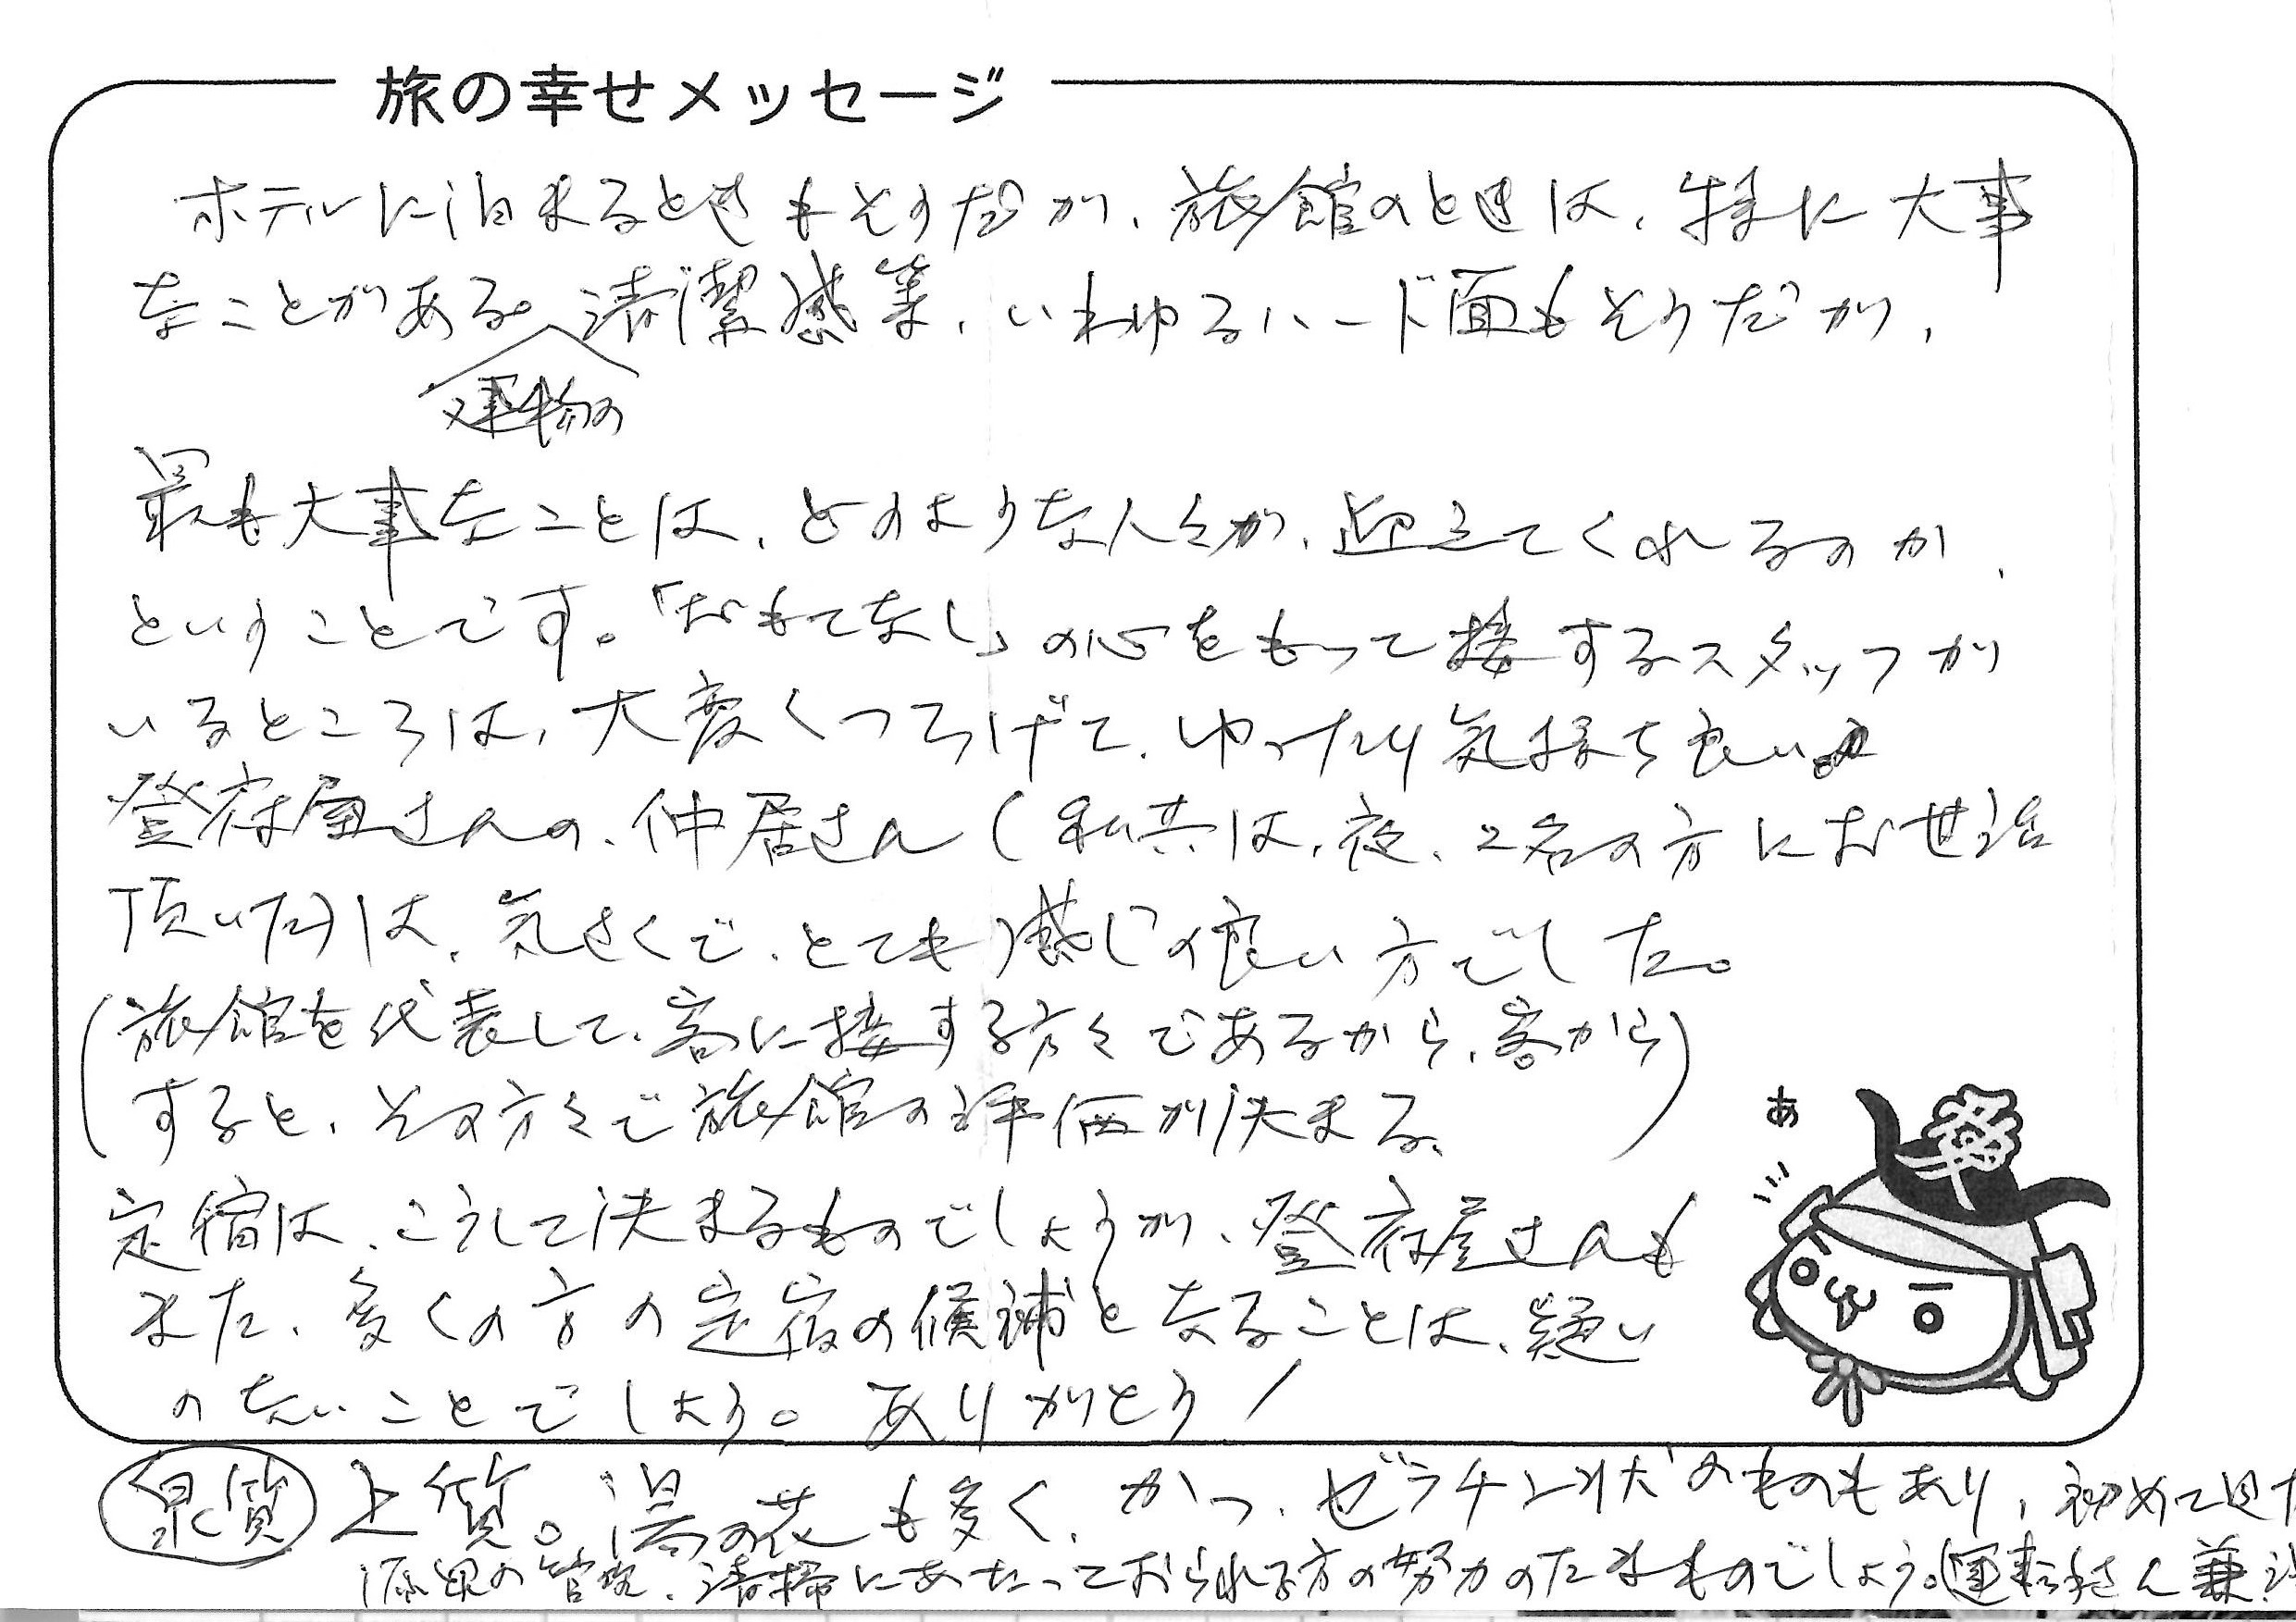 旅の幸せメッセージ
ホテルに泊まるときもそうだが、旅館のときは、特に大事
なことがある。清潔感等、いわゆるハード面もそうだが、
建物の
最も大事なことは、どのような人々が、迎えてくれるのか、
ということです。「おもてなし」の心をもって接するスタッフが
いるところは、大変くつろげて、ゆったり気持ち良い。
登府屋さんの、仲居さん(私共は、夜、2名の方にお世話
頂いた)は、気さくで、とても感じの良い方でした。
(旅館を代表して、客に接する方々であるから、客から
すると、その方々で旅館の評価が決まる。)
定宿は、こうして決まるものでしょうが、登府屋さんも
また、多くの方の定宿の候補となることは、疑い
のないことでしょう。ありがとう!
あ
幸
泉質 上質。湯の花も多く、かつ、ゼラチン状のものもあり、初めて見た
源泉の管理、清掃にあたっておられる方の努力のたまものでしょう。(運転手さん兼